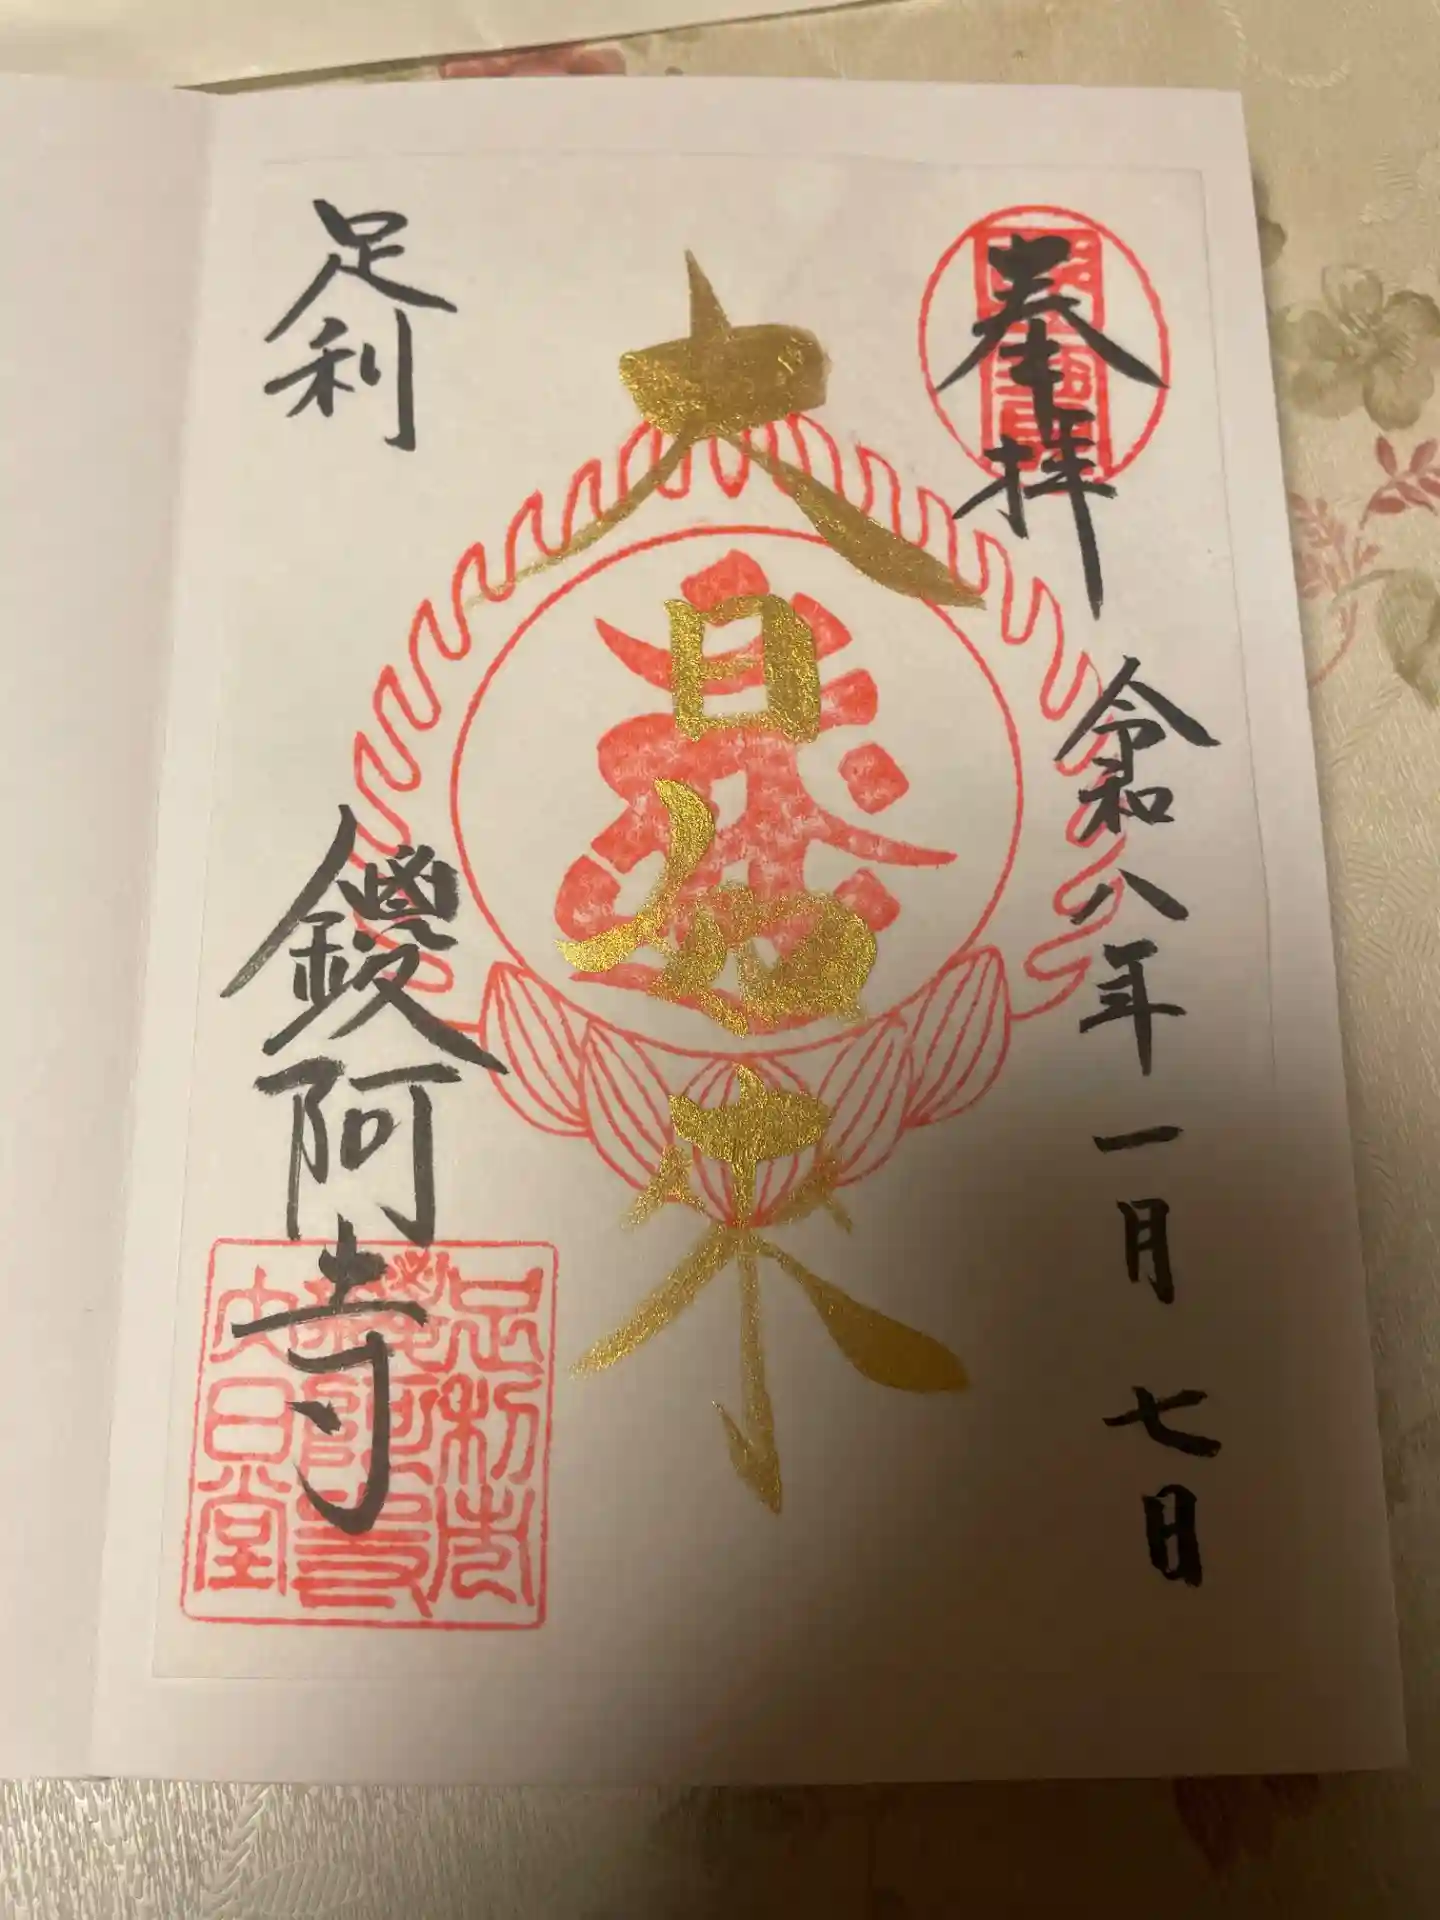 奉拝
令和八年一月七日
大日如来
足利
鑁阿寺
足利市
鑁阿寺
大日堂